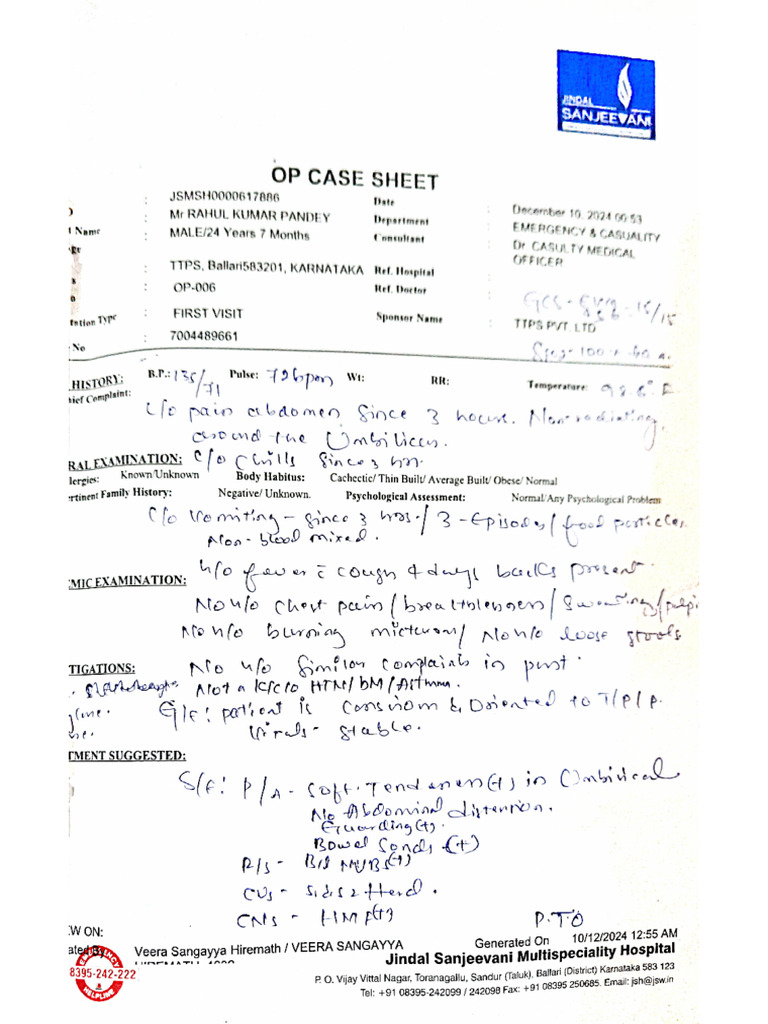 JINDAL
SANJEEVANI
OP CASE SHEET
: JSMSH0000617886 Date : December 10, 2024 00:53
t Name : Mr RAHUL KUMAR PANDEY Department EMERGENCY & CASUALITY
ge : MALE/24 Years 7 Months Consultant : Dr. CASULTY MEDICAL OFFICER
: TTPS, Ballari583201, KARNATAKA Ref. Hospital
: OP-006 Ref. Doctor
GCS - 15/15
ention Type : FIRST VISIT Sponsor Name : TTPS PVT. LTD
No : 7004489661
HISTORY: B.P.: 135/71 Pulse: 72bpm Wt: RR: Temperature: 98.6° F
hief Complaint:
C/o pain abdomen since 3 hours. Non-radiating,
around the Umbilicus.
RAL EXAMINATION: C/o chills since 3 hrs.
llergies: Known/Unknown Body Habitus: Cachectic/ Thin Built/ Average Built/ Obese/ Normal
ertinent Family History: Negative/ Unknown. Psychological Assessment: Normal/Any Psychological Problem
C/o Vomiting - since 3 hrs / 3 - Episodes / food particles.
Non-blood mixed.
EMIC EXAMINATION: H/o fever c̄ cough 4 days back present.
No h/o chest pain / breathlessness / sweating / palpi
No h/o burning micturn / No h/o loose stools
TIGATIONS: No h/o Similar complaints in past.
Not a K/C/O HTN/DM/Asthma.
G/E: patient is conscious & Oriented to T/P/P.
Vitals - stable.
TMENT SUGGESTED:
S/E: P/A - Soft. Tenderness(+) in Umbilical
No Abdominal distension.
Guarding(+).
Bowel Sonds (+)
R/S - B/L NVBS(+)
CVS - S1S2 Herd.
CNS - HMF(+)
P.TO
EW ON:
ated By Veera Sangayya Hiremath / VEERA SANGAYYA Generated On 10/12/2024 12:55 AM
EMERGENCY
8395-242-222
HELPLINE
Jindal Sanjeevani Multispeciality Hospital
P. O. Vijay Vittal Nagar, Toranagallu, Sandur (Taluk), Ballari (District) Karnataka 583 123
Tel: +91 08395-242099 / 242098 Fax: +91 08395 250685. Email: jsh@jsw.in